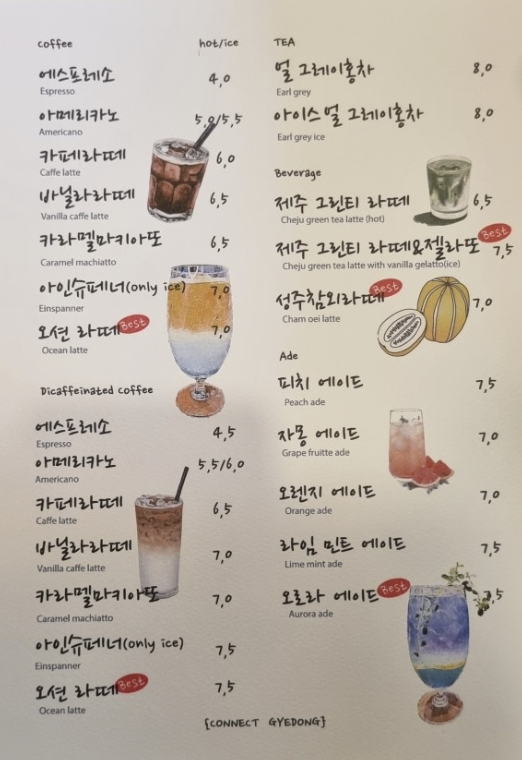 coffee hot/ice
에스프레소 4,0
Espresso
아메리카노 5,0/5,5
Americano
카페라떼 6,0
Caffe latte
바닐라라떼 6,5
Vanilla caffe latte
카라멜마키아또 6,5
Caramel machiatto
아인슈페너(only ice) 7,0
Einspanner
오션 라떼 Best 7,0
Ocean latte
Dicaffeinated coffee
에스프레소 4,5
Espresso
아메리카노 5,5/6,0
Americano
카페라떼 6,5
Caffe latte
바닐라라떼 7,0
Vanilla caffe latte
카라멜마키아또 7,0
Caramel machiatto
아인슈페너(only ice) 7,5
Einspanner
오션 라떼 Best 7,5
Ocean latte
TEA
얼 그레이홍차 8,0
Earl grey
아이스얼 그레이홍차 8,0
Earl grey ice
Beverage
제주 그린티 라떼 6,5
Cheju green tea latte (hot)
제주 그린티 라떼&젤라또 Best 7,5
Cheju green tea latte with vanilla gelatto(ice)
성주참외라떼 Best 7,0
Cham oei latte
Ade
피치 에이드 7,5
Peach ade
자몽 에이드 7,0
Grape fruitte ade
오렌지 에이드 7,0
Orange ade
라임 민트 에이드 7,5
Lime mint ade
오로라 에이드 Best
Aurora ade
{CONNECT GYEDONG}